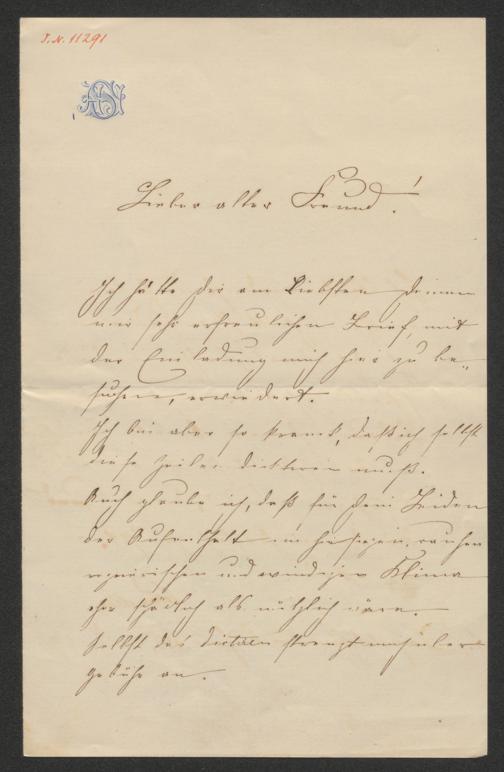 J. N. 11291
AS
Lieber alter Freund!
Ich hätte Dir am Liebsten Deinen
mir sehr erfreulichen Brief, mit
der Einladung mich hier zu be-
suchen, erwiedert.
Ich bin aber so krank, daß ich selbst
diese Zeilen dictieren muß.
Auch glaube ich, daß für Dein Leiden
der Aufenthalt im hiesigen, rauhen
und windigen Klima
eher schädlich als nützlich wäre.
Selbst das Dictiren strengt mich über
Gebühr an.